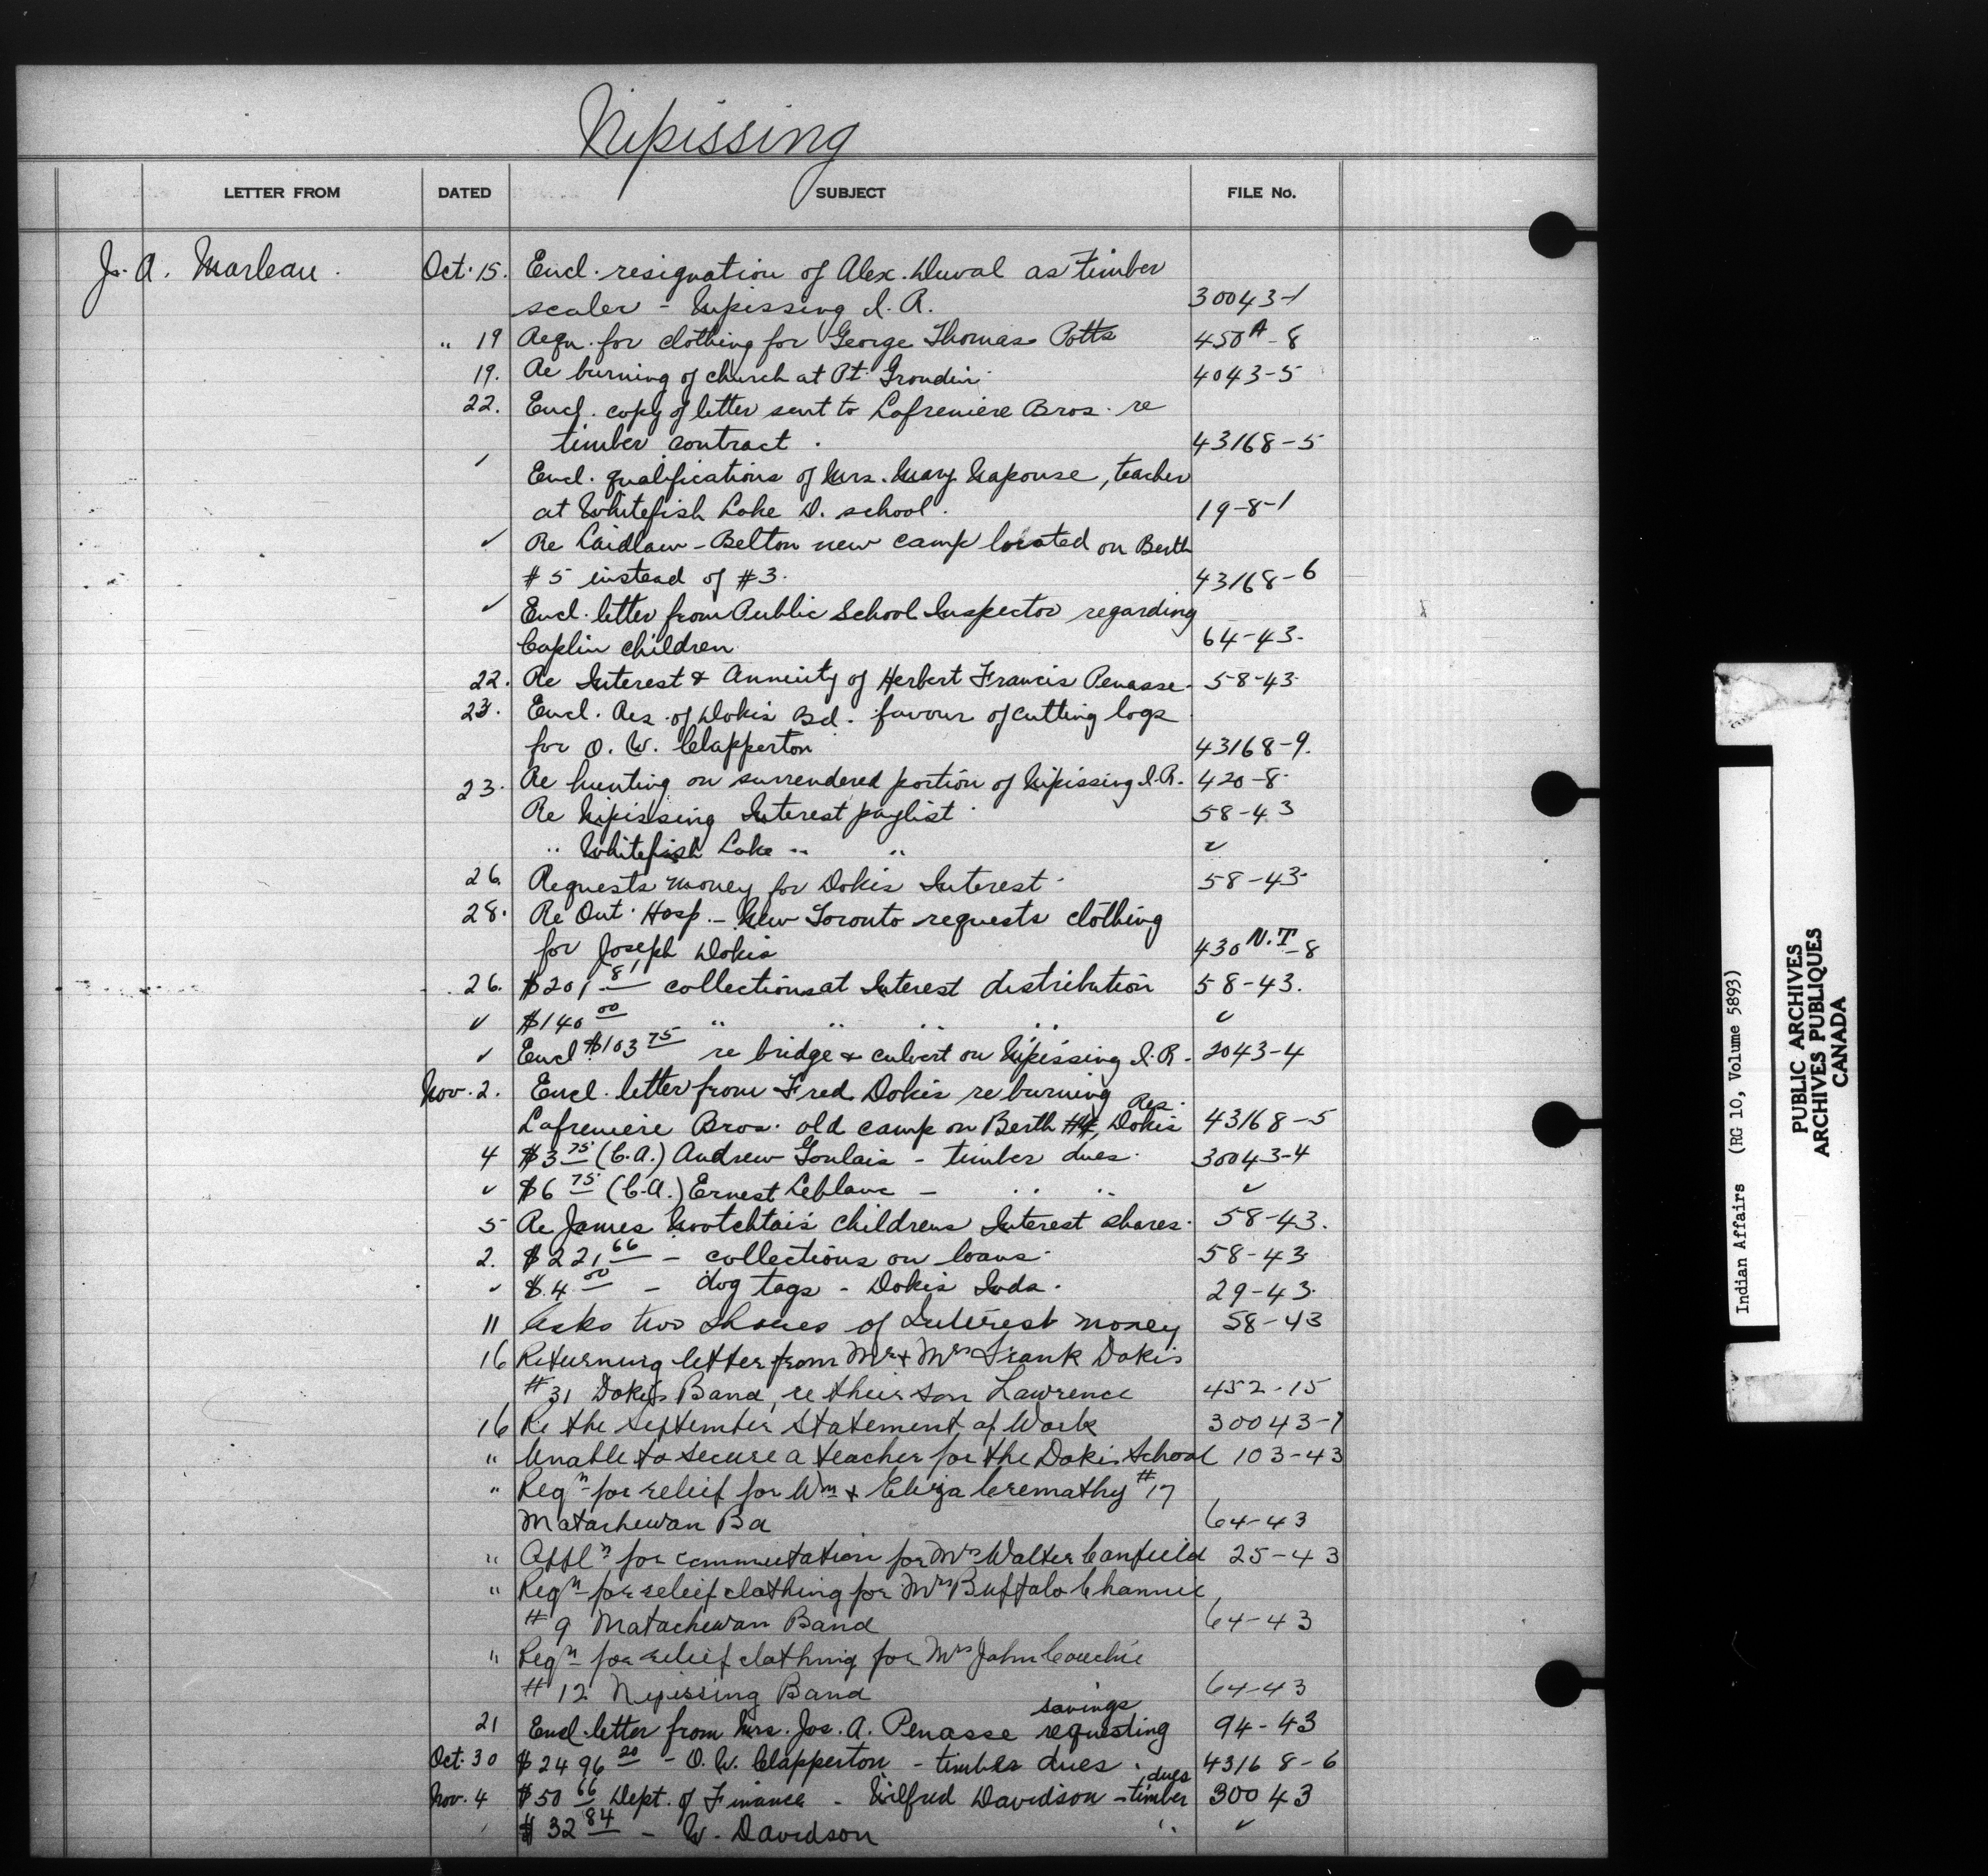 Nipissing
LETTER FROM DATED SUBJECT FILE No.
J. A. Marleau. Oct. 15. Encl. resignation of Alex. Duval as timber
scaler - Nipissing I. R. 30043-1
" 19 Reqn. for clothing for George Thomas Potts 450A-8
19. Re burning of church at Pt. Grondin. 4043-5
22. Encl. copy of letter sent to Lafreniere Bros. re
timber contract. 43168-5
✓ Encl. qualifications of Mrs. Mary Napouse, teacher
at Whitefish Lake D. school. 19-8-1
✓ Re Laidlaw-Belton new camp located on Berth
#5 instead of #3. 43168-6
✓ Encl. letter from Public School Inspector regarding
Caplin children. 64-43.
22. Re Interest & Annuity of Herbert Francis Penasse. 58-43.
23. Encl. Res. of Dokis Bd. favour of cutting logs
for O. W. Clapperton 43168-9.
23. Re hunting on surrendered portion of Nipissing I.R. 420-8.
Re Nipissing Interest paylist. 58-43
" Whitefish Lake " " ✓
26. Requests money for Dokis Interest. 58-43.
28. Re Ont. Hosp. - New Toronto requests clothing
for Joseph Dokis 430 N.T-8
26. $201 81 collections at Interest distribution 58-43.
✓ $140 00 " " " " ✓
✓ Encl $103 75 re bridge & culvert on Nipissing I.R. 2043-4
Nov. 2. Encl. letter from Fred Dokis re burning
Lafreniere Bros. old camp on Berth #4, Dokis Res. 43168-5
4 $3 75 (C.A.) Andrew Goulais - timber dues. 30043-4
✓ $6 75 (C.A.) Ernest Leblanc - " " ✓
5 Re James Nootchtais childrens Interest shares. 58-43.
2. $221 66 - collections on loans. 58-43
✓ $4 00 - dog tags - Dokis Inds. 29-43.
11 Asks two shares of Interest money 58-43
16 Returning letter from Mr & Mrs Frank Dokis
#31 Dokis Band, re their son Lawrence 452-15
16 Re the September Statement of Work 30043-1
" Unable to secure a teacher for the Dokis School 103-43
" Reqn for relief for Wm & Eliza Cremathy #17
Matachewan Ba 64-43
" Appln for commutation for Mrs Walter Canfield 25-43
" Reqn for relief clothing for Mrs Buffalo
#9 Matachewan Band 64-43
" Reqn for relief clothing for Mrs John Couchie
#12 Nipissing Band 64-43
21 Encl. letter from Mrs. Jos. A. Penasse requesting savings 94-43
Oct. 30 $2496 20 - O. W. Clapperton - timber dues. 43168-6
Nov. 4 $50 66 Dept. of Finance - Wilfred Davidson - timber dues 30043
$32 84 - W. Davidson " ✓
Indian Affairs (RG 10, Volume 5893)
PUBLIC ARCHIVES
ARCHIVES PUBLIQUES
CANADA